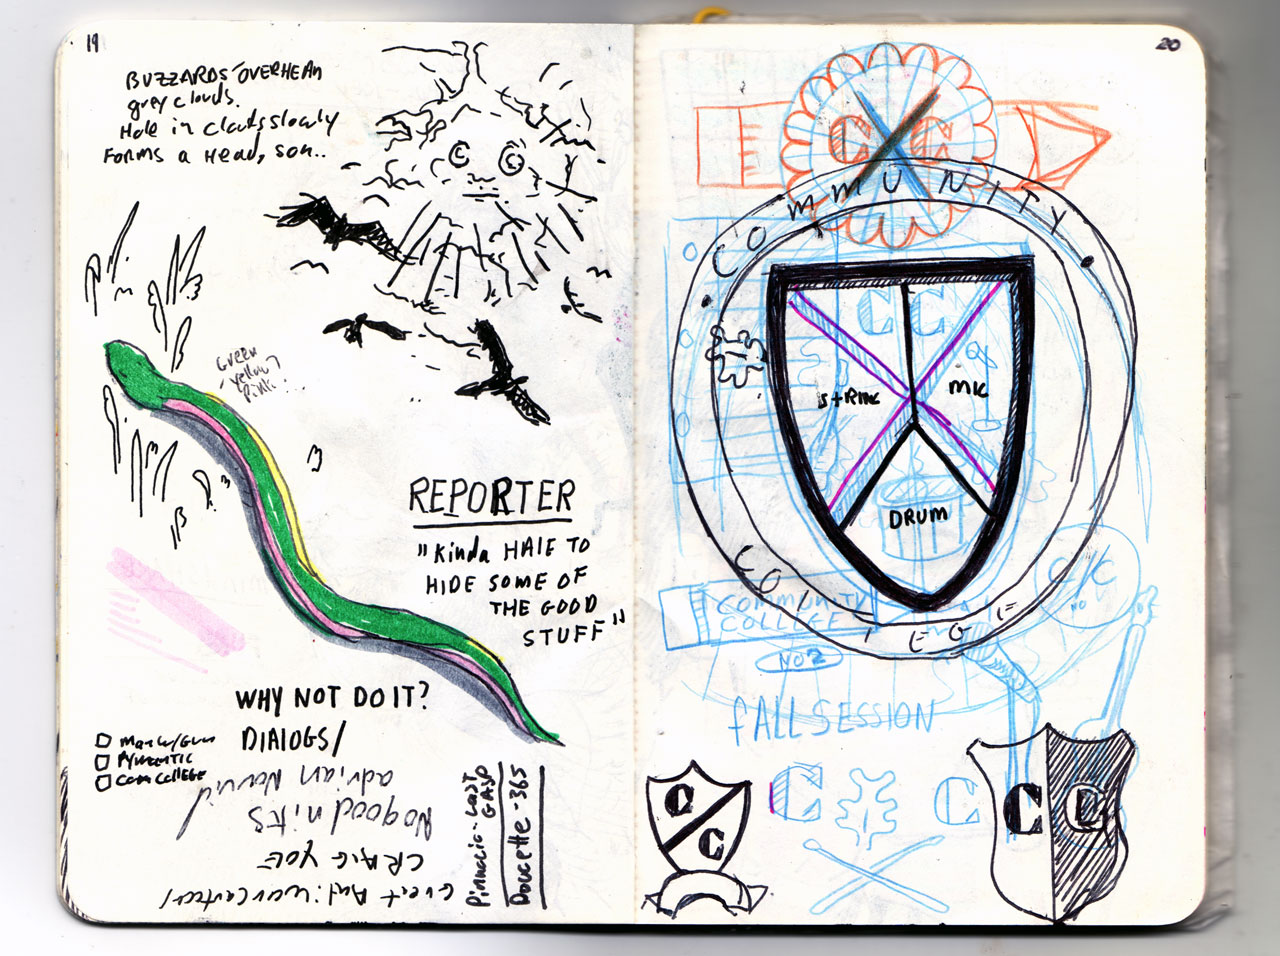 19
BUZZARDS OVERHEAD
grey clouds.
Hole in clouds slowly
FORMS A HEAD, SON..
C C
GREEN
yellow?
PINK?
REPORTER
"Kinda HATE TO
HIDE SOME OF
THE GOOD
STUFF"
WHY NOT DO IT?
DIALOGS/
COM COLLEGE
adrian
No good nits
CRAIG YOE
Pinnacle - LAST
GASP
Doucette - 365
20
C C
COMMUNITY
C C
STRING
MIC
DRUM
COLLEGE
C/C
NO
COMMUNITY
COLLEGE
NO 2
FALL SESSION
C
C
C C
C C